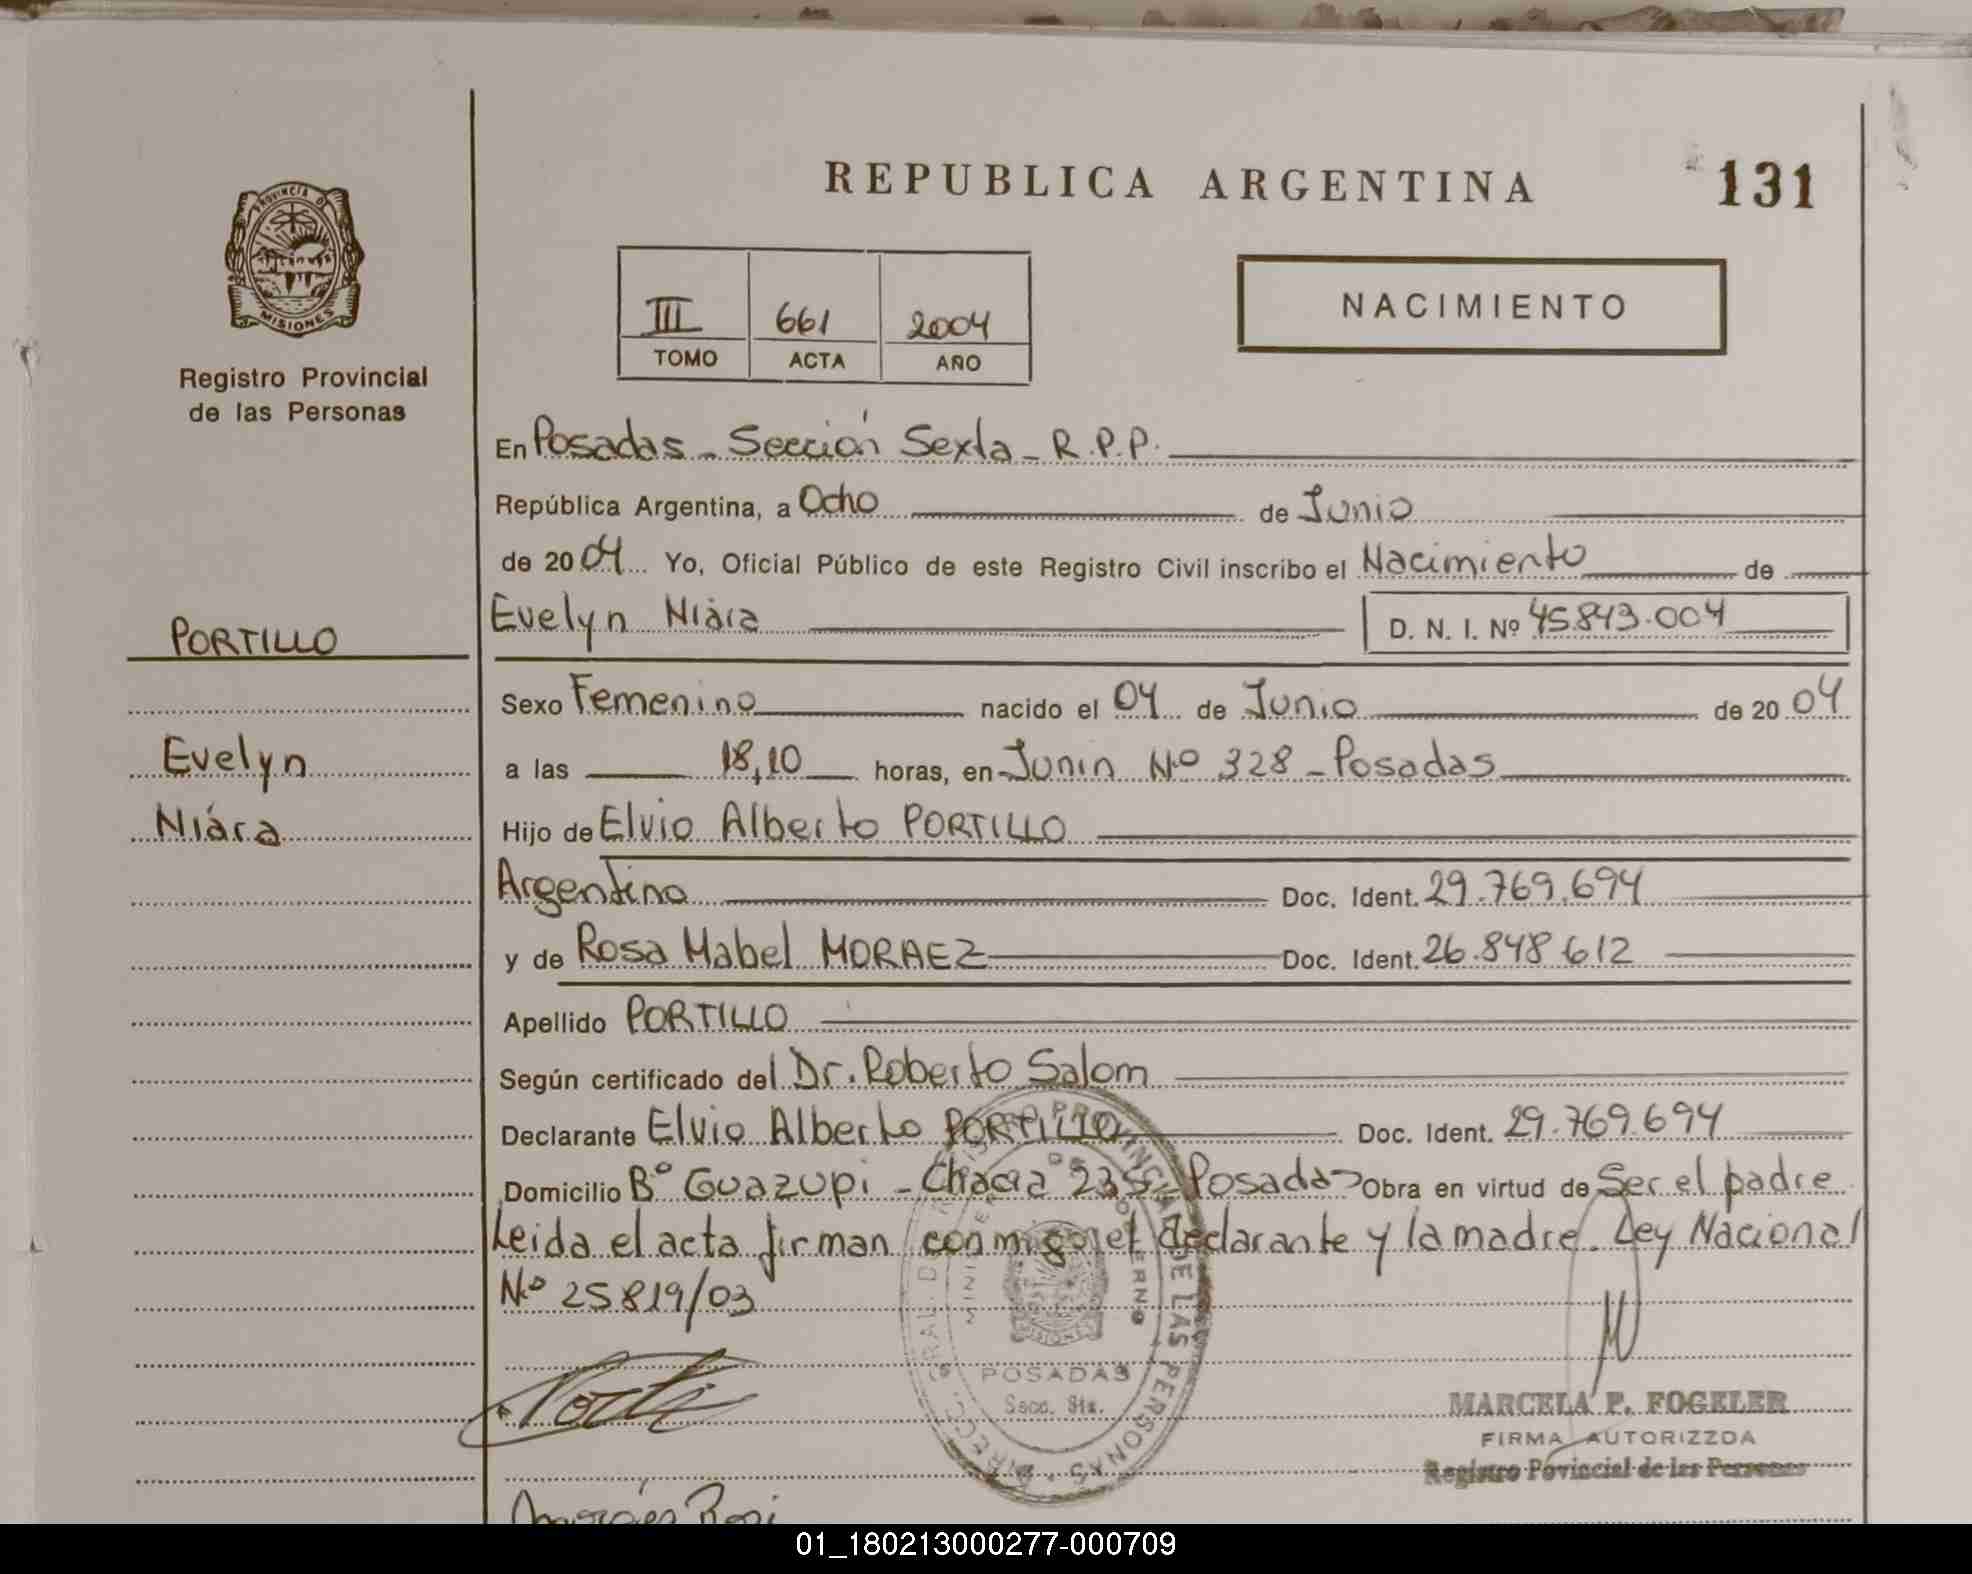 REPUBLICA ARGENTINA
131
PROVINCIA DE
MISIONES
Registro Provincial
de las Personas
III 661 2004
TOMO ACTA AÑO
NACIMIENTO
En Posadas - Sección Sexta - R.P.P.
República Argentina, a Ocho de Junio
de 2004 Yo, Oficial Público de este Registro Civil inscribo el Nacimiento de
PORTILLO
Evelyn Niára
D. N. I. Nº 45.843.004
Sexo Femenino nacido el 04 de Junio de 2004
Evelyn
a las 18,10 horas, en Junin Nº 328 - Posadas
Niára
Hijo de Elvio Alberto PORTILLO
Argentino Doc. Ident. 29.769.694
y de Rosa Mabel MORAEZ Doc. Ident. 26.848.612
Apellido PORTILLO
Según certificado del Dr. Roberto Salom
Declarante Elvio Alberto PORTILLO Doc. Ident. 29.769.694
Domicilio Bº Guazupi - Chacra 235 Posadas Obra en virtud de Ser el padre
Leida el acta firman conmigo el declarante y la madre. Ley Nacional
Nº 25819/03
MINISTERIO DE GOBIERNO
MISIONES
POSADAS
Secc. 6ta.
MARCELA P. FOGELER
FIRMA AUTORIZZDA
Registro Povincial de las Personas
01_180213000277-000709